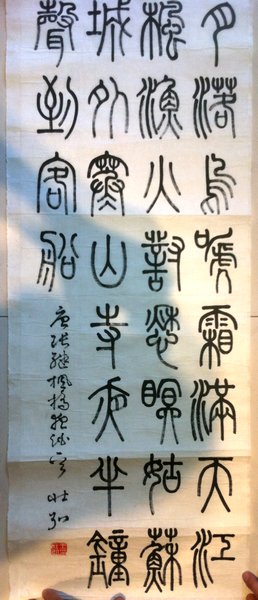 月落烏嗁霜滿天江
楓漁火對愁瞑姑蘇
城外寒山寺夜半鐘
聲到客船
唐張繼楓橋夜泊 壯弘